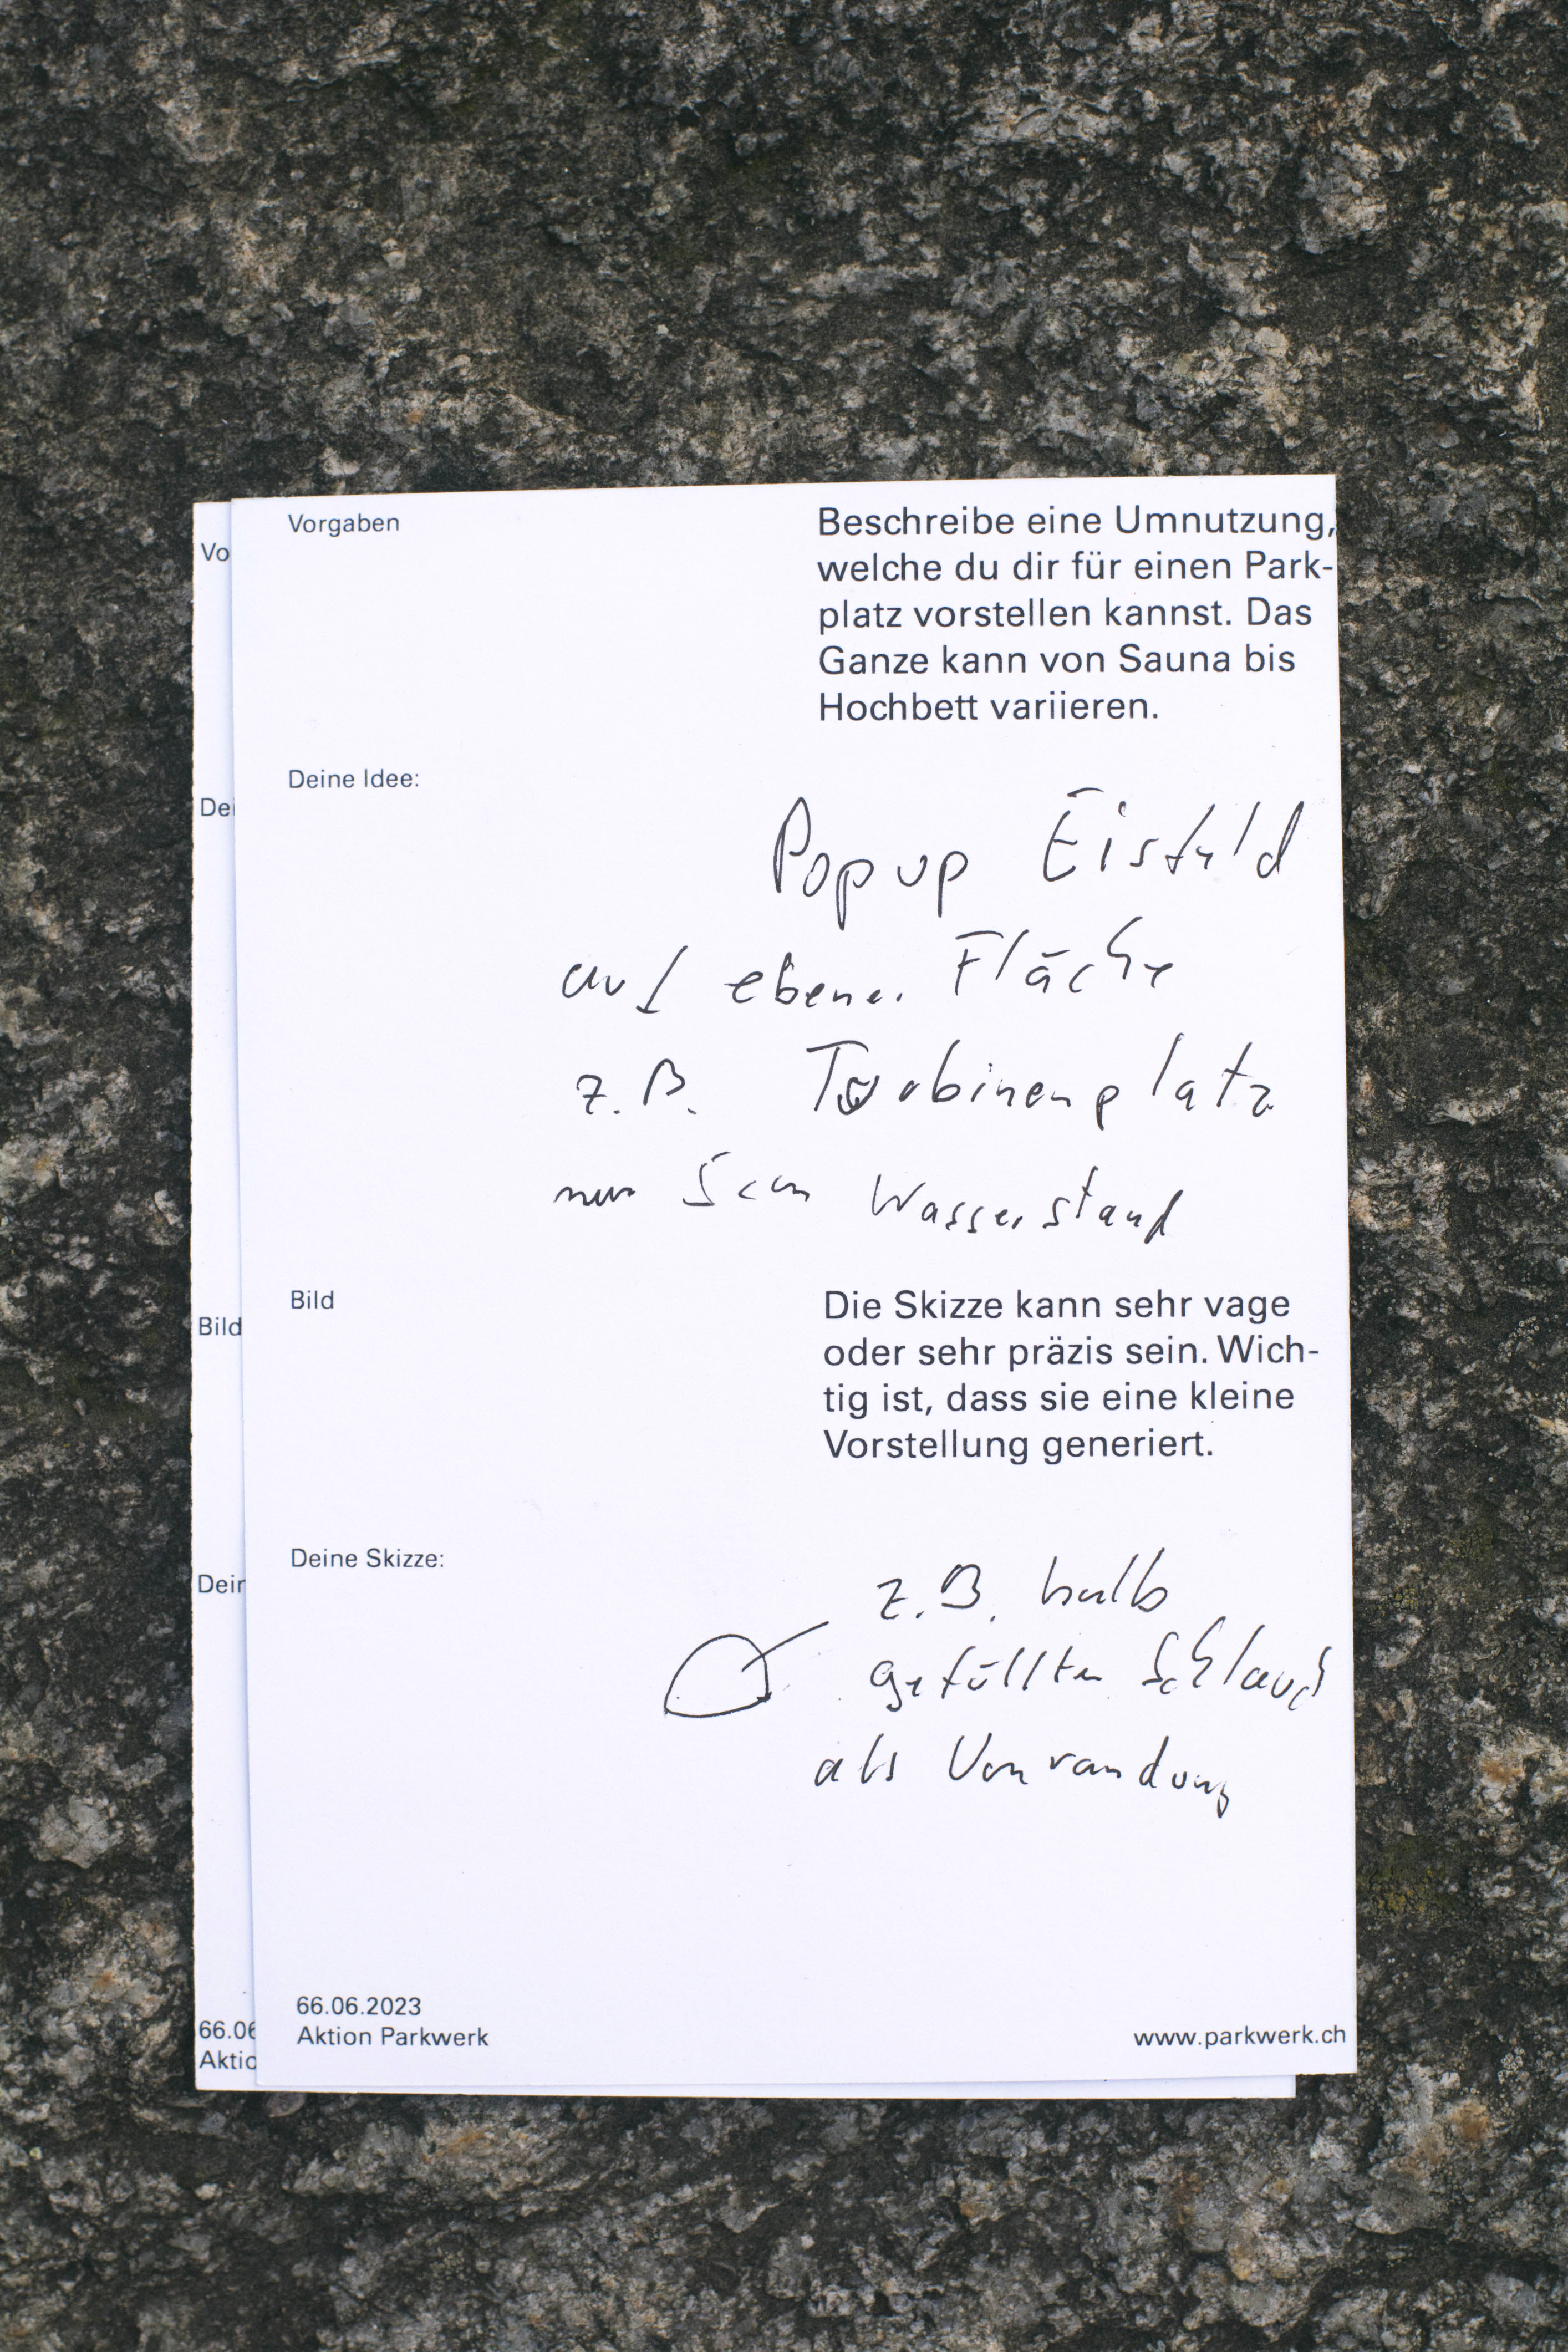 Vorgaben
Beschreibe eine Umnutzung,
welche du dir für einen Park-
platz vorstellen kannst. Das
Ganze kann von Sauna bis
Hochbett variieren.
Deine Idee:
Popup Eisfeld
auf ebener Fläche
z.B. Turbinenplatz
nur 5cm Wasserstand
Bild
Die Skizze kann sehr vage
oder sehr präzis sein. Wich-
tig ist, dass sie eine kleine
Vorstellung generiert.
Deine Skizze:
z.B. halb
gefüllten Schlauch
als Umrandung
66.06.2023
Aktion Parkwerk
www.parkwerk.ch
Vo
Dei
Bild
Dein
66.06
Aktio